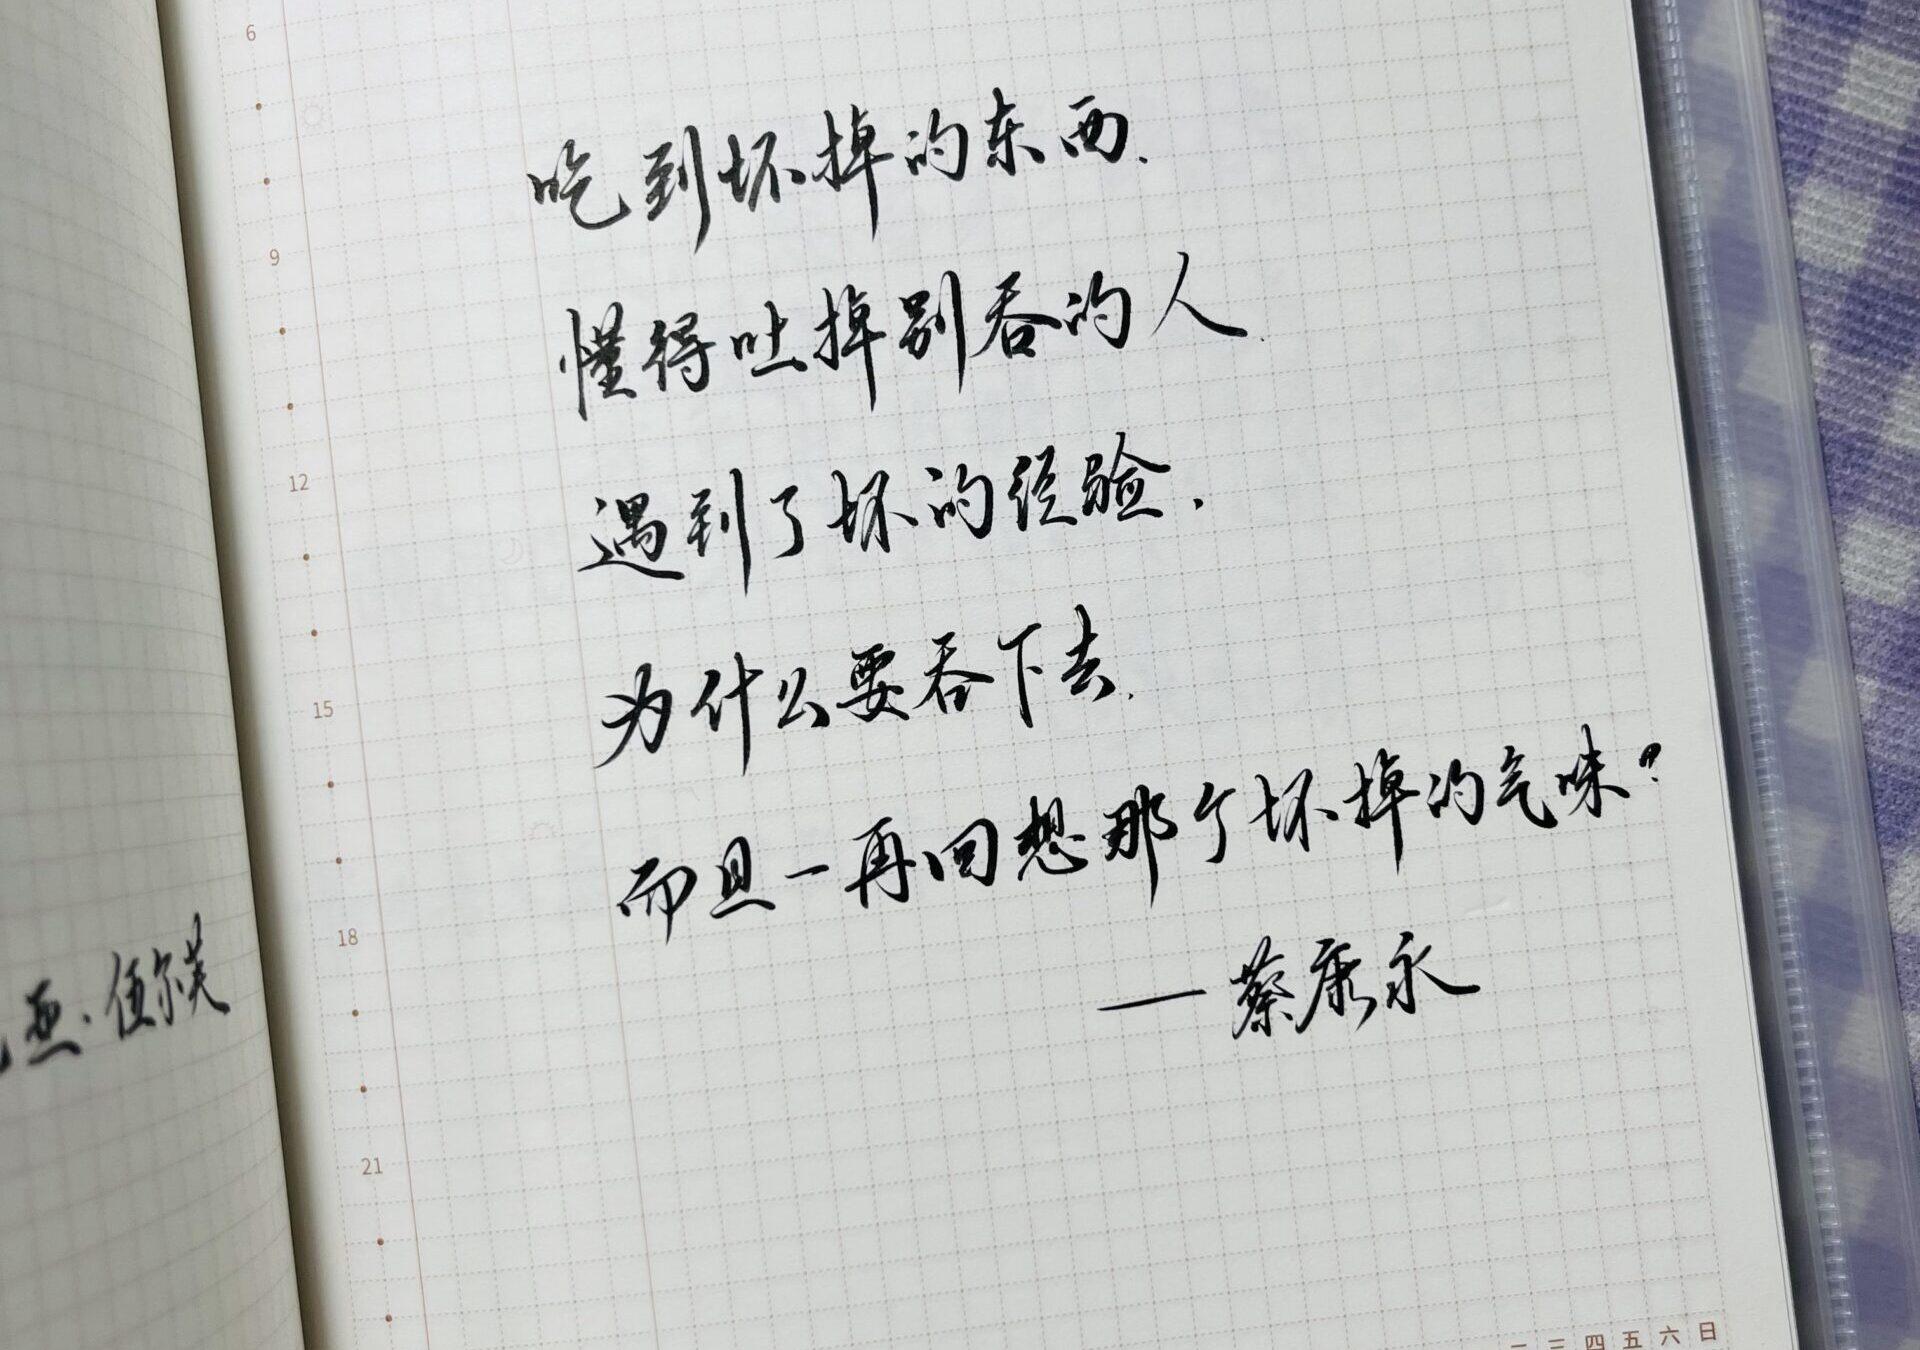 6
吃到坏掉的东西.
9
懂得吐掉别吞的人.
12
遇到了坏的经验.
为什么要吞下去.
15
而且一再回想那个坏掉的气味?
18
—蔡康永
亚·伍尔芙
21
二 三 四 五 六 日